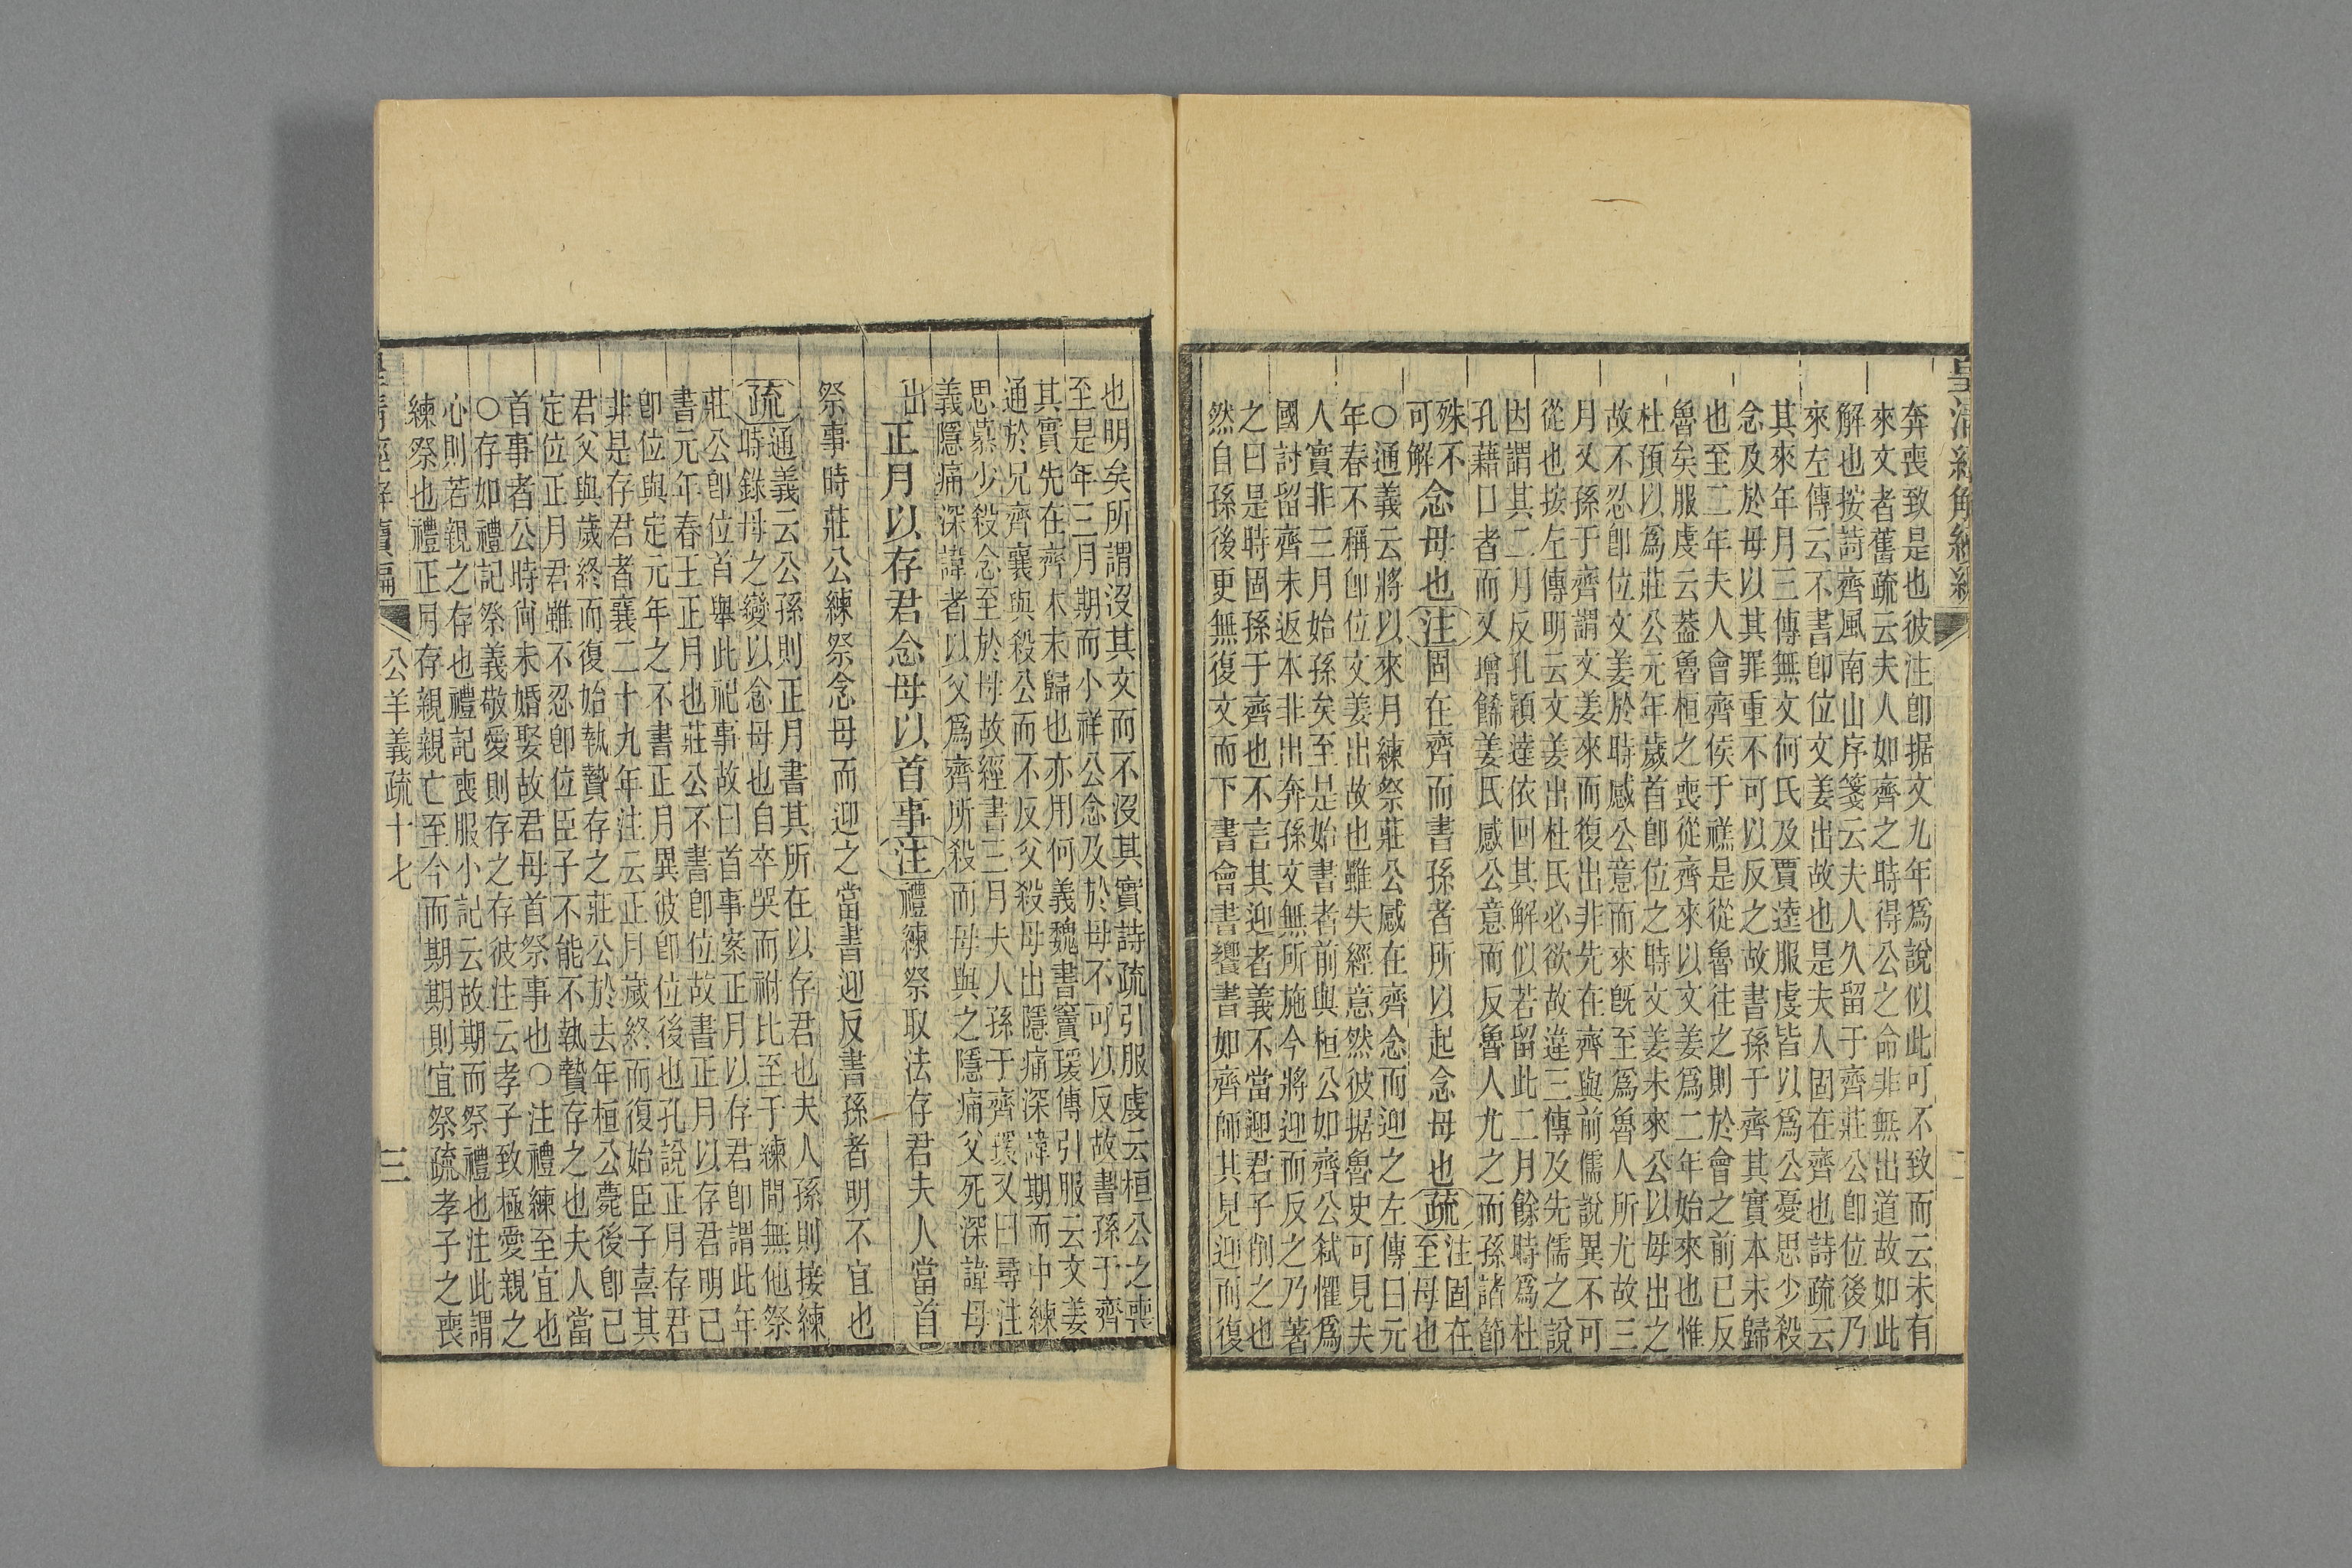 奔喪致是也彼注卽据文九年爲說似此可不致而云未有
來文者舊疏云夫人如齊之時得公之命非無出道故如此
解也按詩齊風南山序箋云夫人久留于齊莊公卽位後乃
來左傳云不書卽位文姜出故也是夫人固在齊也詩疏云
其來年月三傳無文何氏及賈逵服虔皆以爲公憂思少殺
念及於母以其罪重不可以反之故書孫于齊其實本未歸
也至二年夫人會齊侯于禚是從魯往之則於會之前已反
魯矣服虔云葢魯桓之喪從齊來以文姜爲二年始來也惟
杜預以爲莊公元年歲首卽位之時文姜未來公以母出之
故不忍卽位文姜於時感公意而來旣至爲魯人所尤故三
月又孫于齊謂文姜來而復出非先在齊與前儒說異不可
從也按左傳明云文姜出杜氏必欲故違三傳及先儒之說
因謂其二月反孔穎達依回其解似若留此二月餘時爲杜
孔藉口者而又增餙姜氏感公意而反魯人尤之而孫諸節
殊不
可解
念母也注固在齊而書孫者所以起念母也疏
注固在
至母也
○通義云將以來月練祭莊公感在齊念而迎之左傳曰元
年春不稱卽位文姜出故也雖失經意然彼据魯史可見夫
人實非三月始孫矣至是始書者前與桓公如齊公弑懼爲
國討留齊未返本非出奔孫文無所施今將迎而反之乃著
之曰是時固孫于齊也不言其迎者義不當迎君子削之也
然自孫後更無復文而下書會書饗書如齊師其見迎而復
也明矣所謂沒其文而不沒其實詩疏引服虔云桓公之喪
至是年三月期而小祥公念及於母不可以反故書孫于齊
其實先在齊本末歸也亦用何義魏書竇瑗傳引服云文姜
通於兄齊襄與殺公而不反父殺母出隱痛深諱期而中練
思慕少殺念至於母故經書三月夫人孫于齊瑗又曰尋注
義隱痛深諱者以父爲齊所殺而母與之隱痛父死深諱母
出
正月以存君念母以首事注禮練祭取法存君夫人當首
祭事時莊公練祭念母而迎之當書迎反書孫者明不宜也
疏通義云公孫則正月書其所在以存君也夫人孫則接練
時錄母之變以念母也自卒哭而祔比至于練閒無他祭
莊公卽位首舉此祀事故曰首事案正月以存君卽謂此年
書元年春王正月也莊公不書卽位故書正月以存君明已
卽位與定元年之不書正月異彼卽位後也孔說正月存君
非是存君者襄二十九年注云正月歲終而復始臣子喜其
君父與歲終而復始執贄存之莊公於去年桓公薨後卽已
定位正月君雖不忍卽位臣子不能不執贄存之也夫人當
首事者公時尙未婚娶故君母首祭事也○注禮練至宜也
○存如禮記祭義敬愛則存之存彼注云孝子致極愛親之
心則若親之存也禮記喪服小記云故期而祭禮也注此謂
練祭也禮正月存親親亡至今而期期則宜祭疏孝子之喪
公羊義疏十七
三